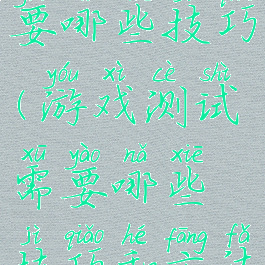 要哪些技巧
yóu xì cè shì
(游戏测试
xū yào nǎ xiē
需要哪些
jì qiǎo hé fāng fǎ